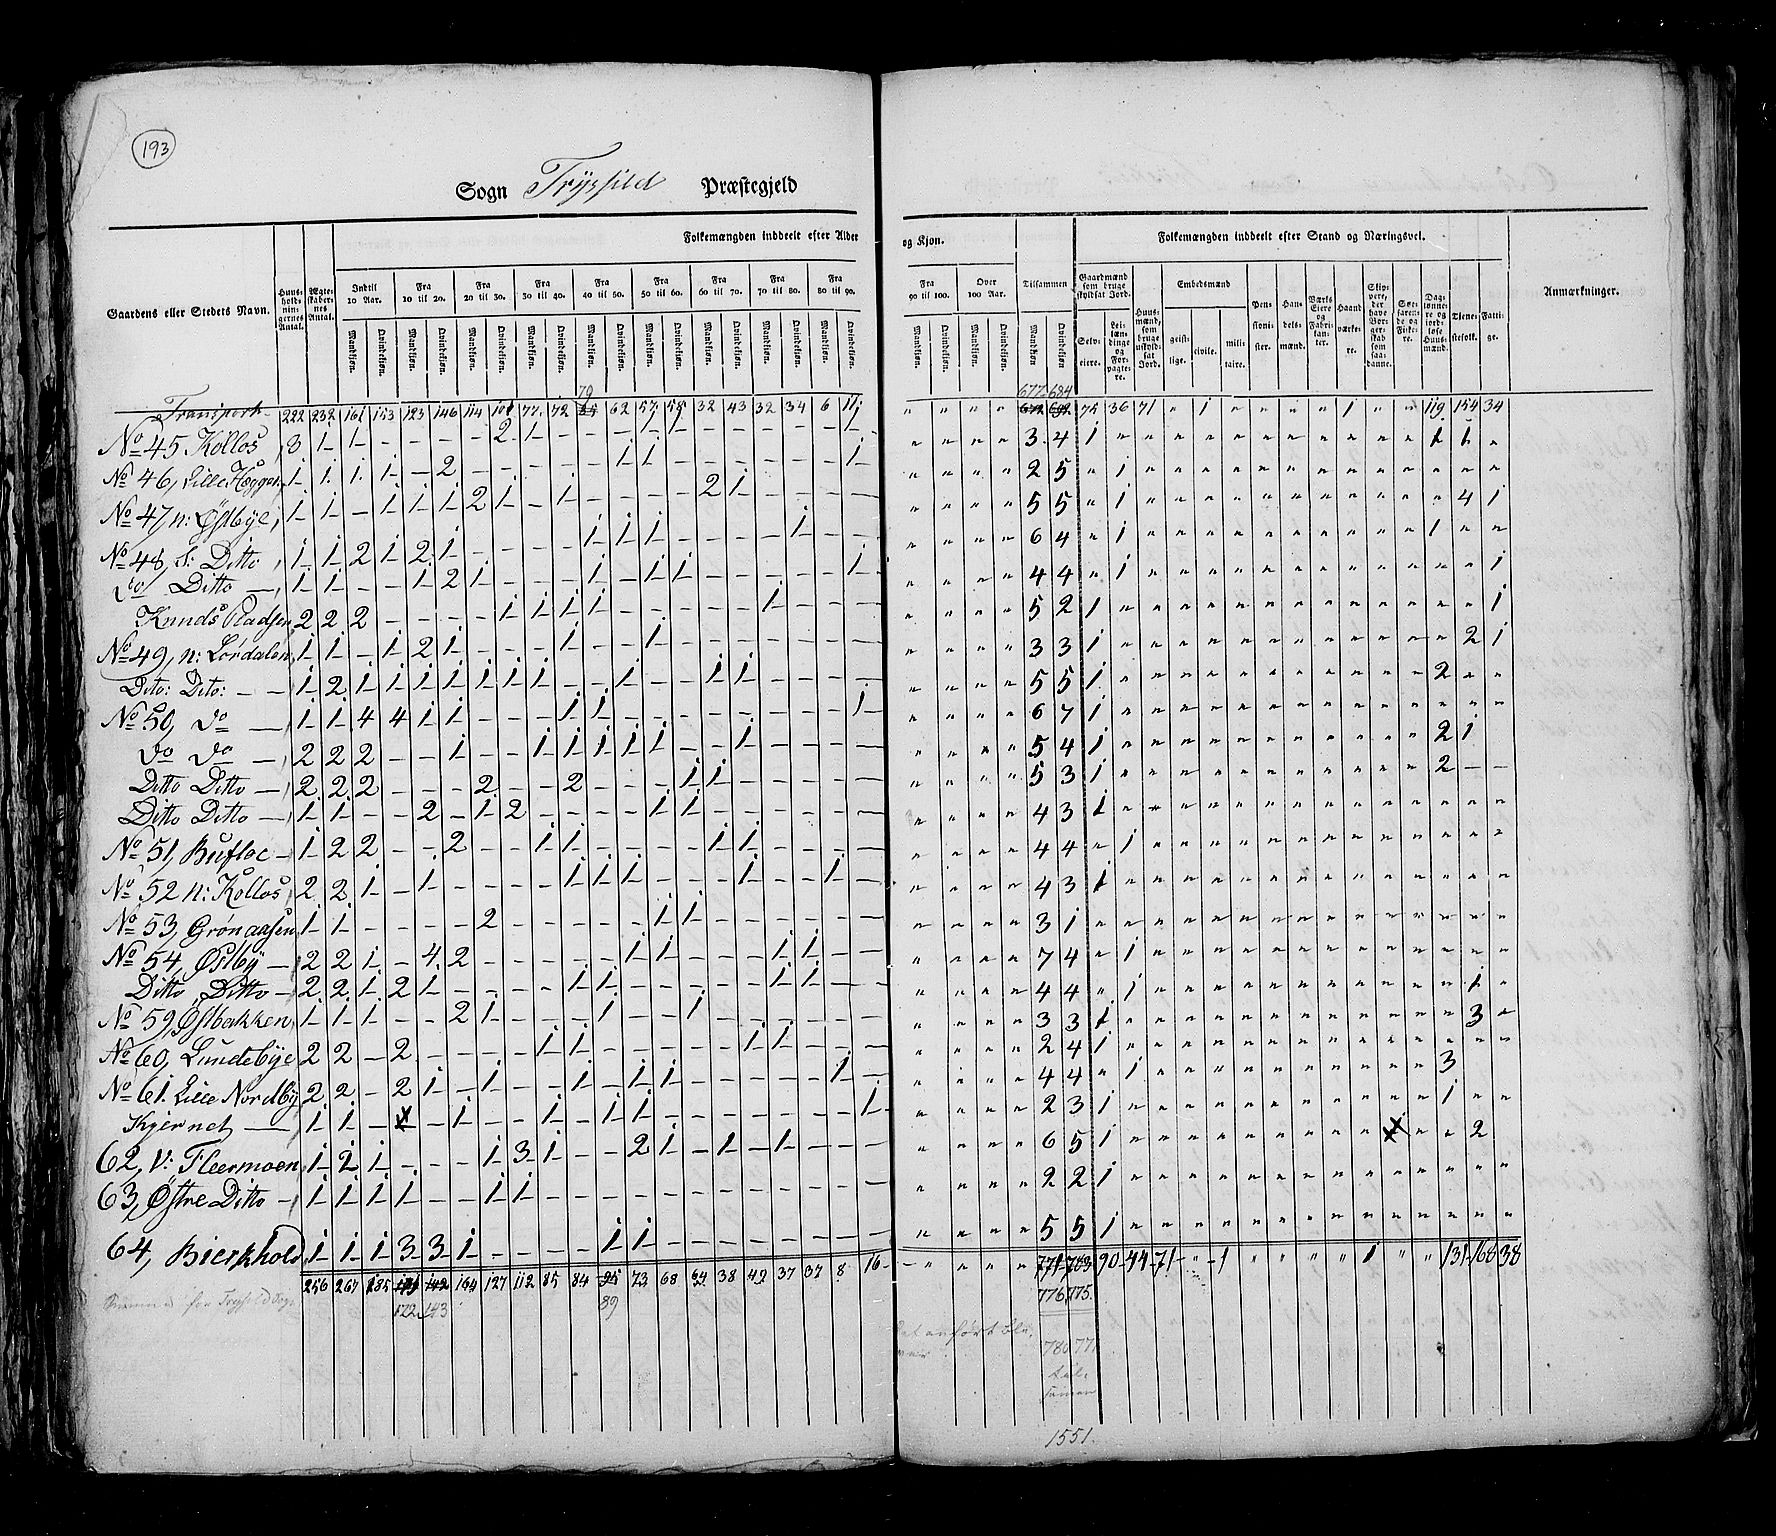 193
Sogn Trysild Præstegjeld
Gaardens eller Stedets Navn. Huusholdningernes Antal. Ægteskabernes Antal. Folkemængden inddeelt efter Alder og Kjøn. Tilsammen Folkemængden inddeelt efter Stand og Næringsvei. Anmærkninger.
Indtil 10 Aar. Fra 10 til 20. Fra 20 til 30. Fra 30 til 40. Fra 40 til 50. Fra 50 til 60. Fra 60 til 70. Fra 70 til 80. Fra 80 til 90. Fra 90 til 100. Over 100 Aar.
Mandkjøn. Qvindekjøn.
Gaardmænd som bruge skyldsat Jord. Selveiere. Leilændinge og Forpagtere. Huusmænd, som bruge uskyldsat Jord. Embedsmænd geistlige. civile. militaire. Pensionister. Handelsmænd. Værks Eiere og Fabrikanter. Haandværkere. Skippere, der have Borgerskab som saadanne. Søefarende og Fiskere. Dagslønnere og jordløse Huusmænd. Tjenestefolk. Fattige.
79 677 684
Transport 222 232 161 153 123 146 114 101 77 72 62 57 58 32 43 32 34 6 11 75 36 71 " 1 " " " " 1 " " 119 154 34
No 45 Kollos 3 1 1 - - - - 2 1 - - - 1 1 - - - - - 1 " " " " 3 4 1 " " " " " " " " " " " 1 1 "
No 46, Lille Hegger 1 1 1 1 - 2 - - - - - 1 1 - - - - - - 1 " " " " 2 5 " 1
No 47, n: Østbye 1 1 - 1 1 1 2 1 - 1 - - - - 2 1 - - - - " " " " 5 5 " 1 " " " " " " " " " " " 4 1
No 48, S: Ditto 1 1 2 1 2 1 - - - - 1 1 1 - - - - 1 - - " " " " 6 4 " 1 " " " " " " " " " " 1 " "
do Ditto 1 1 - - 1 2 1 - - - 1 - 1 1 - - - - - 1 " " " " 4 4 " 1 " " " " " " " " " " " " 1
Knuds Pladsen 2 2 2 - - - - 1 1 1 1 - - - - - 1 - - - " " " " 5 2 1 " " " " " " " " " " " " " 1
No 49, n: Lørdalen 1 1 - 1 2 1 - - - 1 - - 1 - - - - - - - " " " " 3 3 1 " " " " " " " " " " " " 2 1
Dito: Dito: 1 2 1 1 1 1 1 1 1 - - 1 - - 1 1 - - - - " " " " 5 5 1 " " " " " " " " " " " 2 " "
No 50, do 1 1 4 4 1 1 - - - 1 1 - - - - - - - - 1 " " " " 6 7 1
do do 2 2 2 - - 1 - - 1 1 1 1 1 - - 1 - - - - " " " " 5 4 1 " " " " " " " " " " " 2 1
Ditto Ditto 2 2 2 - - - 2 - - 2 - - - 1 1 - - - - " " " " 5 3 1 " " " " " " " " " " " 2 - -
Ditto Ditto 1 1 - - 2 - 1 2 - - - - 1 1 - - - - - - " " " " 4 3 1
No 51, Bufloe 1 2 2 - - 2 - - 1 1 - - - - 1 1 - - - - " " " " 4 4 " 1
No 52 n: Kollos 2 2 1 - 1 - - - - 1 1 1 - - - 1 - - 1 - " " " " 4 3 1
No 53, Grønaasen 1 1 - - - - 2 - - - - - 1 1 - - - - - - " " " " 3 1
No 54, Østby 2 2 1 - 4 2 - - - - - 1 1 - - - 1 1 - - " " " " 7 4 " 1
Ditto Ditto 2 2 1 2 1 - - - - 1 1 - - - - - 1 1 - - " " " " 4 4 " 1 " " " " " " " " " " " 1 "
No 59, Østbakken 1 1 1 - - 2 1 - - - 1 - - 1 - - - - - - " " " " 3 3 1 " " " " " " " " " " " " 3 "
No 60, Lundebye 2 2 - 2 - - - - 1 1 - - - - - 1 1 - - - " " " " 2 4 1
No 61. Lille Nordby 2 2 - 2 1 - 1 - - 1 - 1 1 - - - - - 1 - " " " " 4 4 " 1 " " " " " " " " " " 3
Kjernet 1 1 - - 1 - - 1 - 1 1 - - - - - - - 1 " " " " 2 3 1 " " " " " " " " " " " 1 " "
62, V: Fleermoen 1 2 1 - - - 1 3 1 - - 2 1 - 1 - 1 - - - " " " " 6 5 1 " " " " " " " " " " " " 2
63, Østre Ditto 1 1 1 1 - - 1 1 - - - - - - - - - - - - " " " " 2 2 1
64, Bierkhold 1 1 1 3 3 1 - - - - 1 1 - - - - - - - - " " " " 5 5 1
256 267 185 164 127 112 85 84 73 68 64 38 42 37 37 8 16 771 783 90 44 71 " 1 " " " " 1 " " 131 168 38
Summa for Trysild Sogn 172 143 89 776 775
anført blever 780 771
tilsamen
1551.